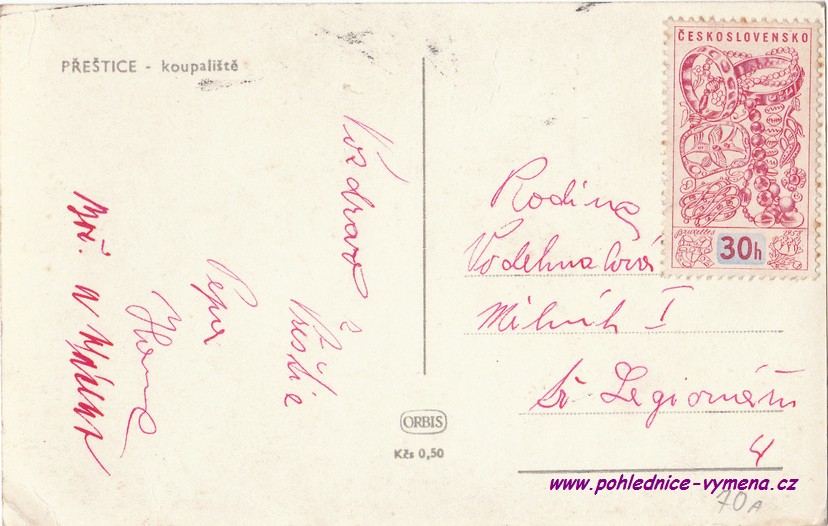 PŘEŠTICE - koupaliště
Pozdrav z
Přeštic
Pepa
ORBIS
Kčs 0,50
ČESKOSLOVENSKO
Bruxelles 1958
30h
Rodina
Vodehnalova
Mělník I
tř. Legionářů
4
www.pohlednice-vymena.cz
70A